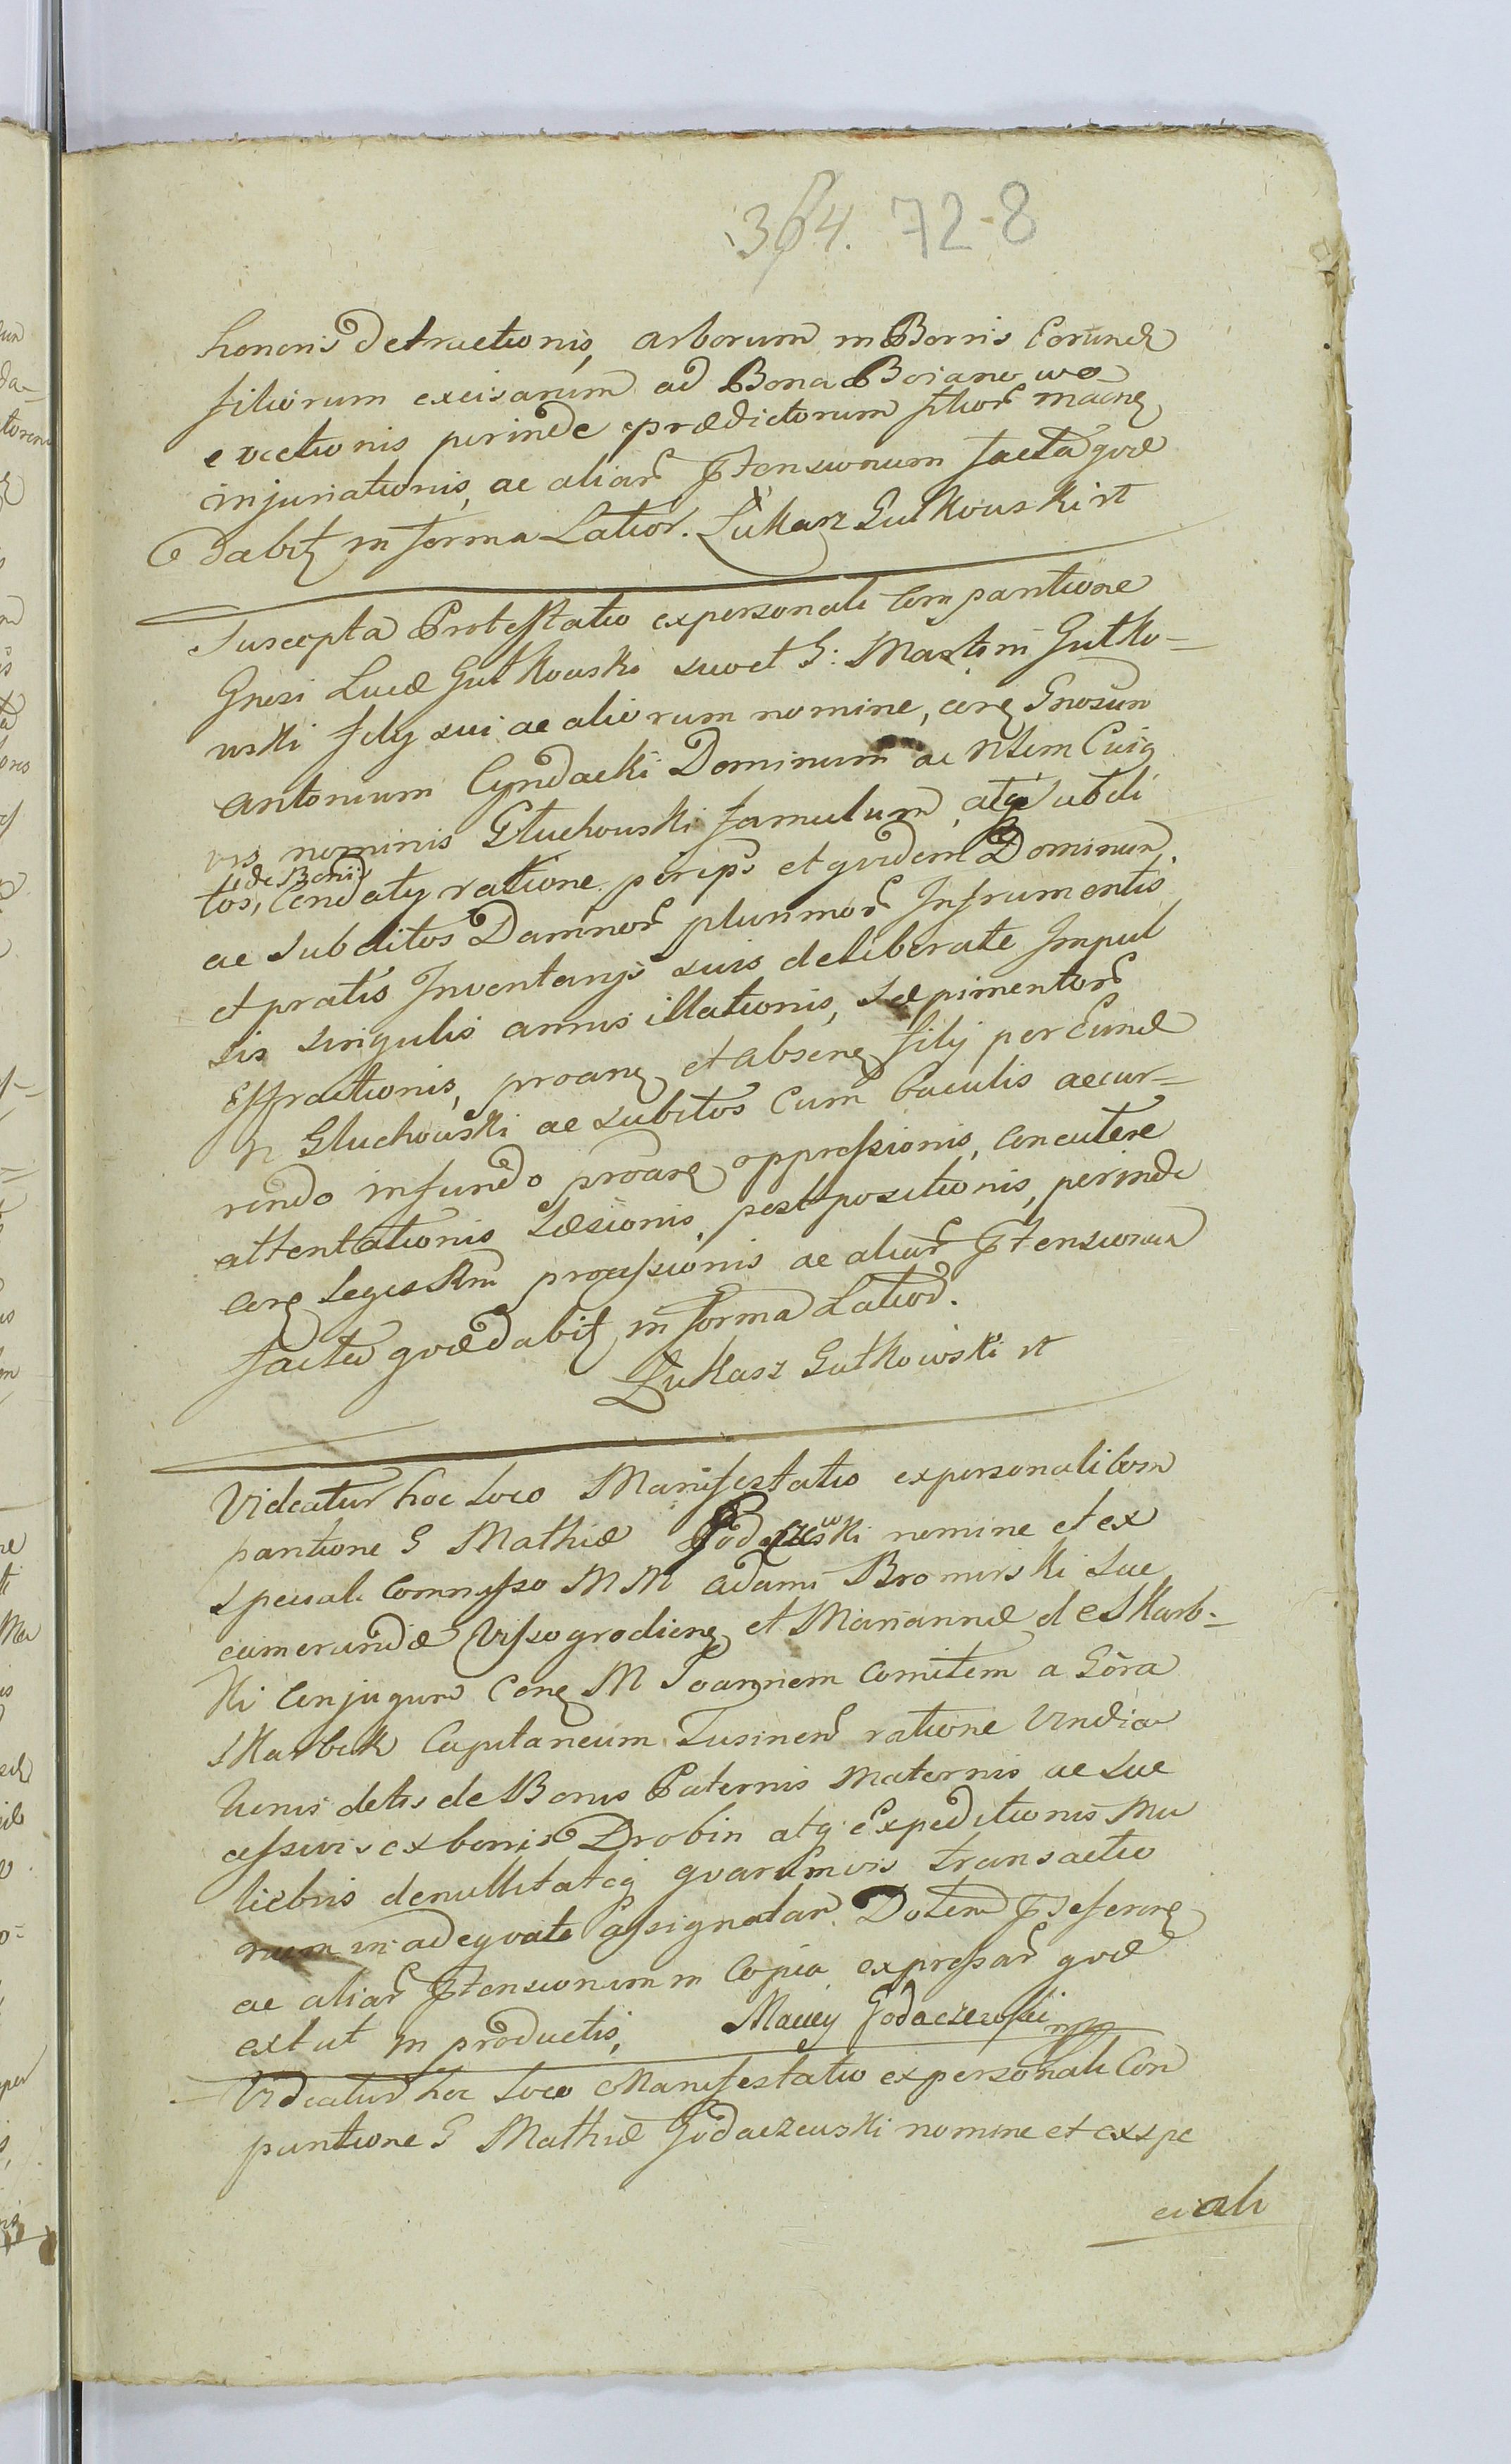 364. 72-8
honoris detractionis, arborum in Borris Eorund
filiorum excisarum ad Bona Boianowo
evectionis perinde prædictorum filior maong
injuriationis, ac aliar ptensionum facta qvæ
dabit in forma Latior. Łukasz Gutkowski rt
Suscepta Protestatio ex personali Com paritione
Gnosi Lucæ Gutkowski suo et G: Martini Gutko=
wski filij sui ac aliorum nomine, cong Gnosum
Antonium Cyndacki Dominum ac Ntem Cuig
vis nominis Głuchowski famulum, atq subdi
tos, de Bonis Cendaty ratione per ips et qvidem Dominum
ac Subditos Damnor plurimor In frumentis
et pratis Inventarijs suis deliberate Impul
sis singulis annis illationis, sæpimentor
Effractionis, proang et abseng filij per Eund
N Głuchowski ac subitos Cum baculis accur=
rendo in fundo proang oppressionis, Concutere
attentationis Læsionis, postpositionis, perinde
cong leges Rni processionis ac aliar ptensionum
facta qvæ dabit in forma Latior.
Łukasz Gutkowski rt
Videatur hoc Loco Manifestatio ex personali Com
paritione G Mathiæ Godaczewski nomine et ex
speciali Commisso M M Adami Bromirski Suc
camerandæ Vissogrodieng et Mariannæ de Skarb=
ki Conjugum Cong M Joannem Comitem a Góra
Skarbek Capitaneum Tusinen ratione Vindica
tionis dotis de Bonis Paternis Maternis ac Suc
cessivis ex bonis Drobin atq Expeditionis Mu
liebris de nullitateq qvarumvis transactio
num inadeqvate assignatar Dotem psefereng
ac aliar ptensionum in Copia expressar qvæ
ext ut in productis, Maciey Godaczewski mp
Videatur hoc Loco Manifestatio ex personali Com
paritione G Mathiæ Godaczewski nomine et ex spe
ciali